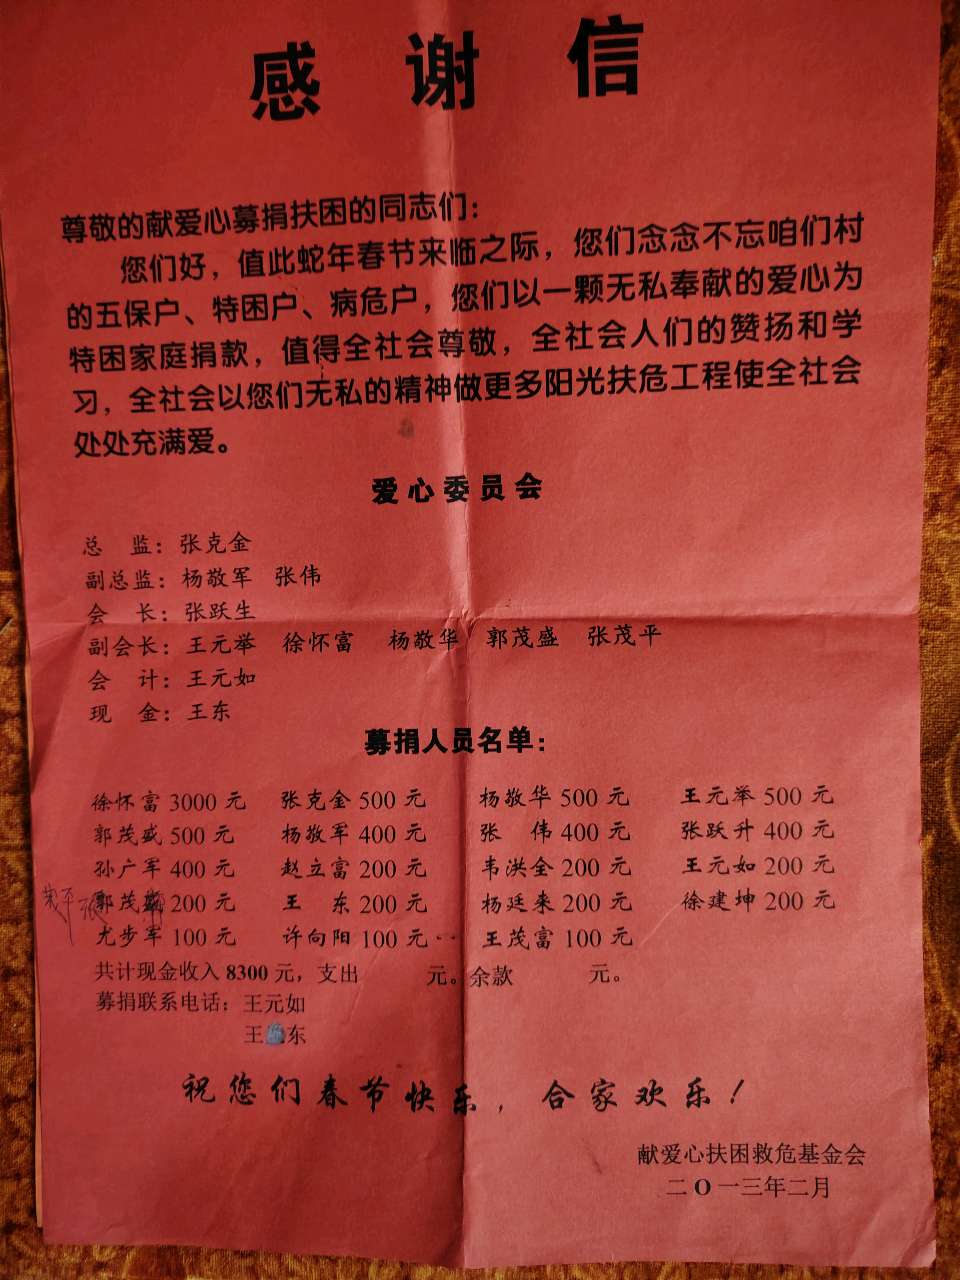 感谢信
尊敬的献爱心募捐扶困的同志们：
您们好，值此蛇年春节来临之际，您们念念不忘咱们村
的五保户、特困户、病危户，您们以一颗无私奉献的爱心为
特困家庭捐款，值得全社会尊敬，全社会人们的赞扬和学
习，全社会以您们无私的精神做更多阳光扶危工程使全社会
处处充满爱。
爱心委员会
总 监：张克金
副总监：杨敬军 张伟
会 长：张跃生
副会长：王元举 徐怀富 杨敬华 郭茂盛 张茂平
会 计：王元如
现 金：王东
募捐人员名单：
徐怀富 3000 元 张克金 500 元 杨敬华 500 元 王元举 500 元
郭茂盛 500 元 杨敬军 400 元 张 伟 400 元 张跃升 400 元
孙广军 400 元 赵立富 200 元 韦洪全 200 元 王元如 200 元
郭茂 200 元 王 东 200 元 杨廷来 200 元 徐建坤 200 元
尤步军 100 元 许向阳 100 元 王茂富 100 元
共计现金收入 8300 元，支出 元。余款 元。
募捐联系电话：王元如
王 东
祝您们春节快乐，合家欢乐！
献爱心扶困救危基金会
二O一三年二月